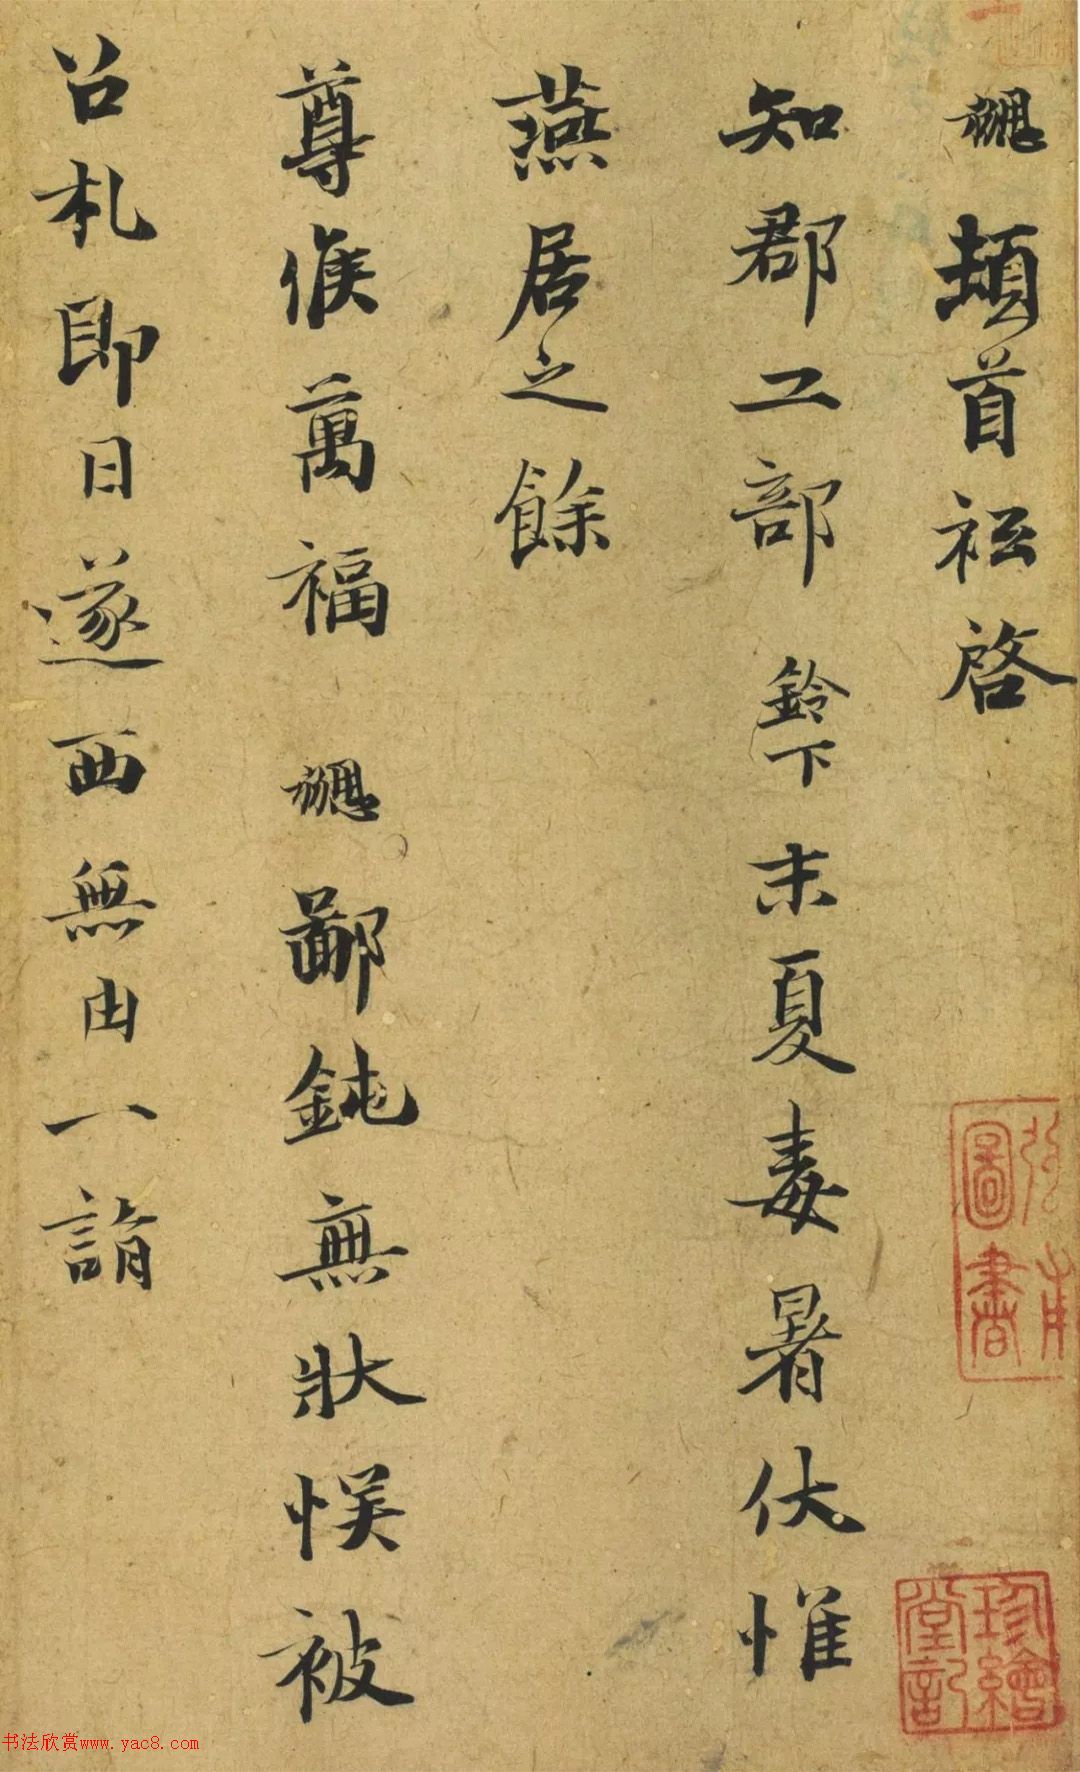 勰頓首祗啓
知郡工部鈴下末夏毒暑伏惟
燕居之餘
尊候萬福勰鄙鈍無狀悮被
召札即日遂西無由一詣
圖書
珍繪堂記
书法欣赏www.yac8.com